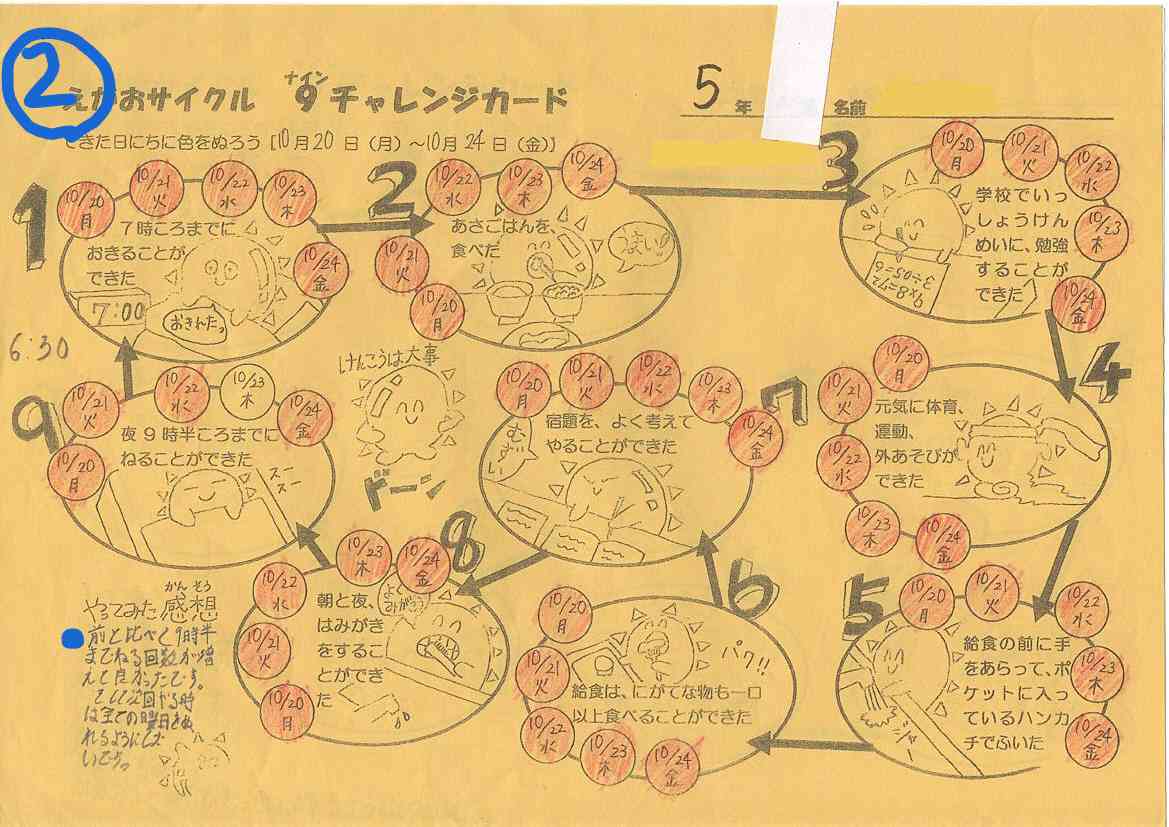 ②
えがおサイクル 9チャレンジカード
ナイン
5年
名前
できた日にちに色をぬろう[10月20日(月)～10月24日(金)]
1
10/20 月
10/21 火
10/22 水
10/23 木
10/24 金
7時ころまでに
おきることが
できた
7:00
おきれたっ
6:30
2
10/20 月
10/21 火
10/22 水
10/23 木
10/24 金
あさごはんを、
食べた
うまい
3
10/20 月
10/21 火
10/22 水
10/23 木
10/24 金
学校でいっ
しょうけん
めいに、勉強
することが
できた
4
10/20 月
10/21 火
10/22 水
10/23 木
10/24 金
元気に体育、
運動、
外あそびが
できた
5
10/20 月
10/21 火
10/22 水
10/23 木
10/24 金
給食の前に手
をあらって、ポ
ケットに入っ
ているハンカ
チでふいた
6
10/20 月
10/21 火
10/22 水
10/23 木
10/24 金
パク!!
給食は、にがてな物も一口
以上食べることができた
7
10/20 月
10/21 火
10/22 水
10/23 木
10/24 金
宿題を、よく考えて
やることができた
8
10/20 月
10/21 火
10/22 水
10/23 木
10/24 金
朝と夜、
はみがき
をするこ
とができ
た
よく
みがこう
9
10/20 月
10/21 火
10/22 水
10/23 木
10/24 金
夜9時半ころまでに
ねることができた
スー
スー
けんこうは大事
ドーン
かんそう
やってみた感想
前と比べて9時半
までねる回数が増
えて良かったです。
そして次回やる時
は全ての曜日をぬ
れるようにした
いです。